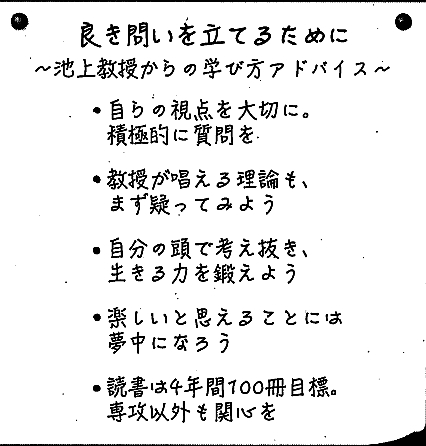 良き問いを立てるために
～池上教授からの学び方アドバイス～
•自らの視点を大切に。
積極的に質問を
•教授が唱える理論も、
まず疑ってみよう
•自分の頭で考え抜き、
生きる力を鍛えよう
•楽しいと思えることには
夢中になろう
•読書は4年間100冊目標。
専攻以外も関心を